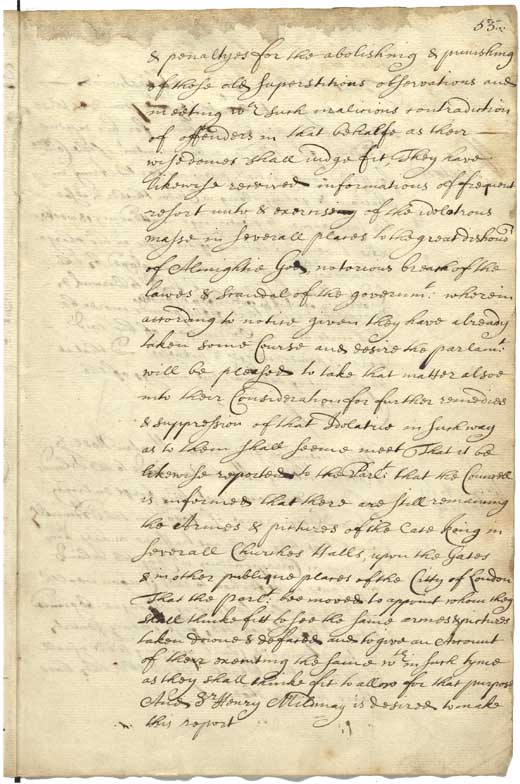 53
& penaltyes for the abolishing & punishing
of these old superstitious observations and
meeting wth such malicious contradiction
of offenders in that behalfe as their
wisedomes shall iudge fit They have
likewise received informations of frequent
resort unto & exercising of the idolatrous
masse in severall places to the great dishonr
of Almightie God notorious breach of the
lawes & scandal of the governmt. wherein
according to notice given they have already
taken some Course and desire the parliamt.
will be pleased to take that matter alsoe
into their Consideration for further remedies
& suppression of that Idolatrie in such way
as to them shall seeme meet That it be
likewise reported to the Parlt. that the Councell
is informed that there are still remaining
the Armes & pictures of the late King in
severall Churches Halls, upon the Gates
& in other publique places of the Citty of London
That the parlt. bee moved to appoint whom they
shall thinke fitt to see the same armes & pictures
taken downe & defaced and to give an Account
of their executing the same wth in such tyme
as they shall thinke fit to allow for that purpose
And Sr Henry Mildmay is desired to make
this report